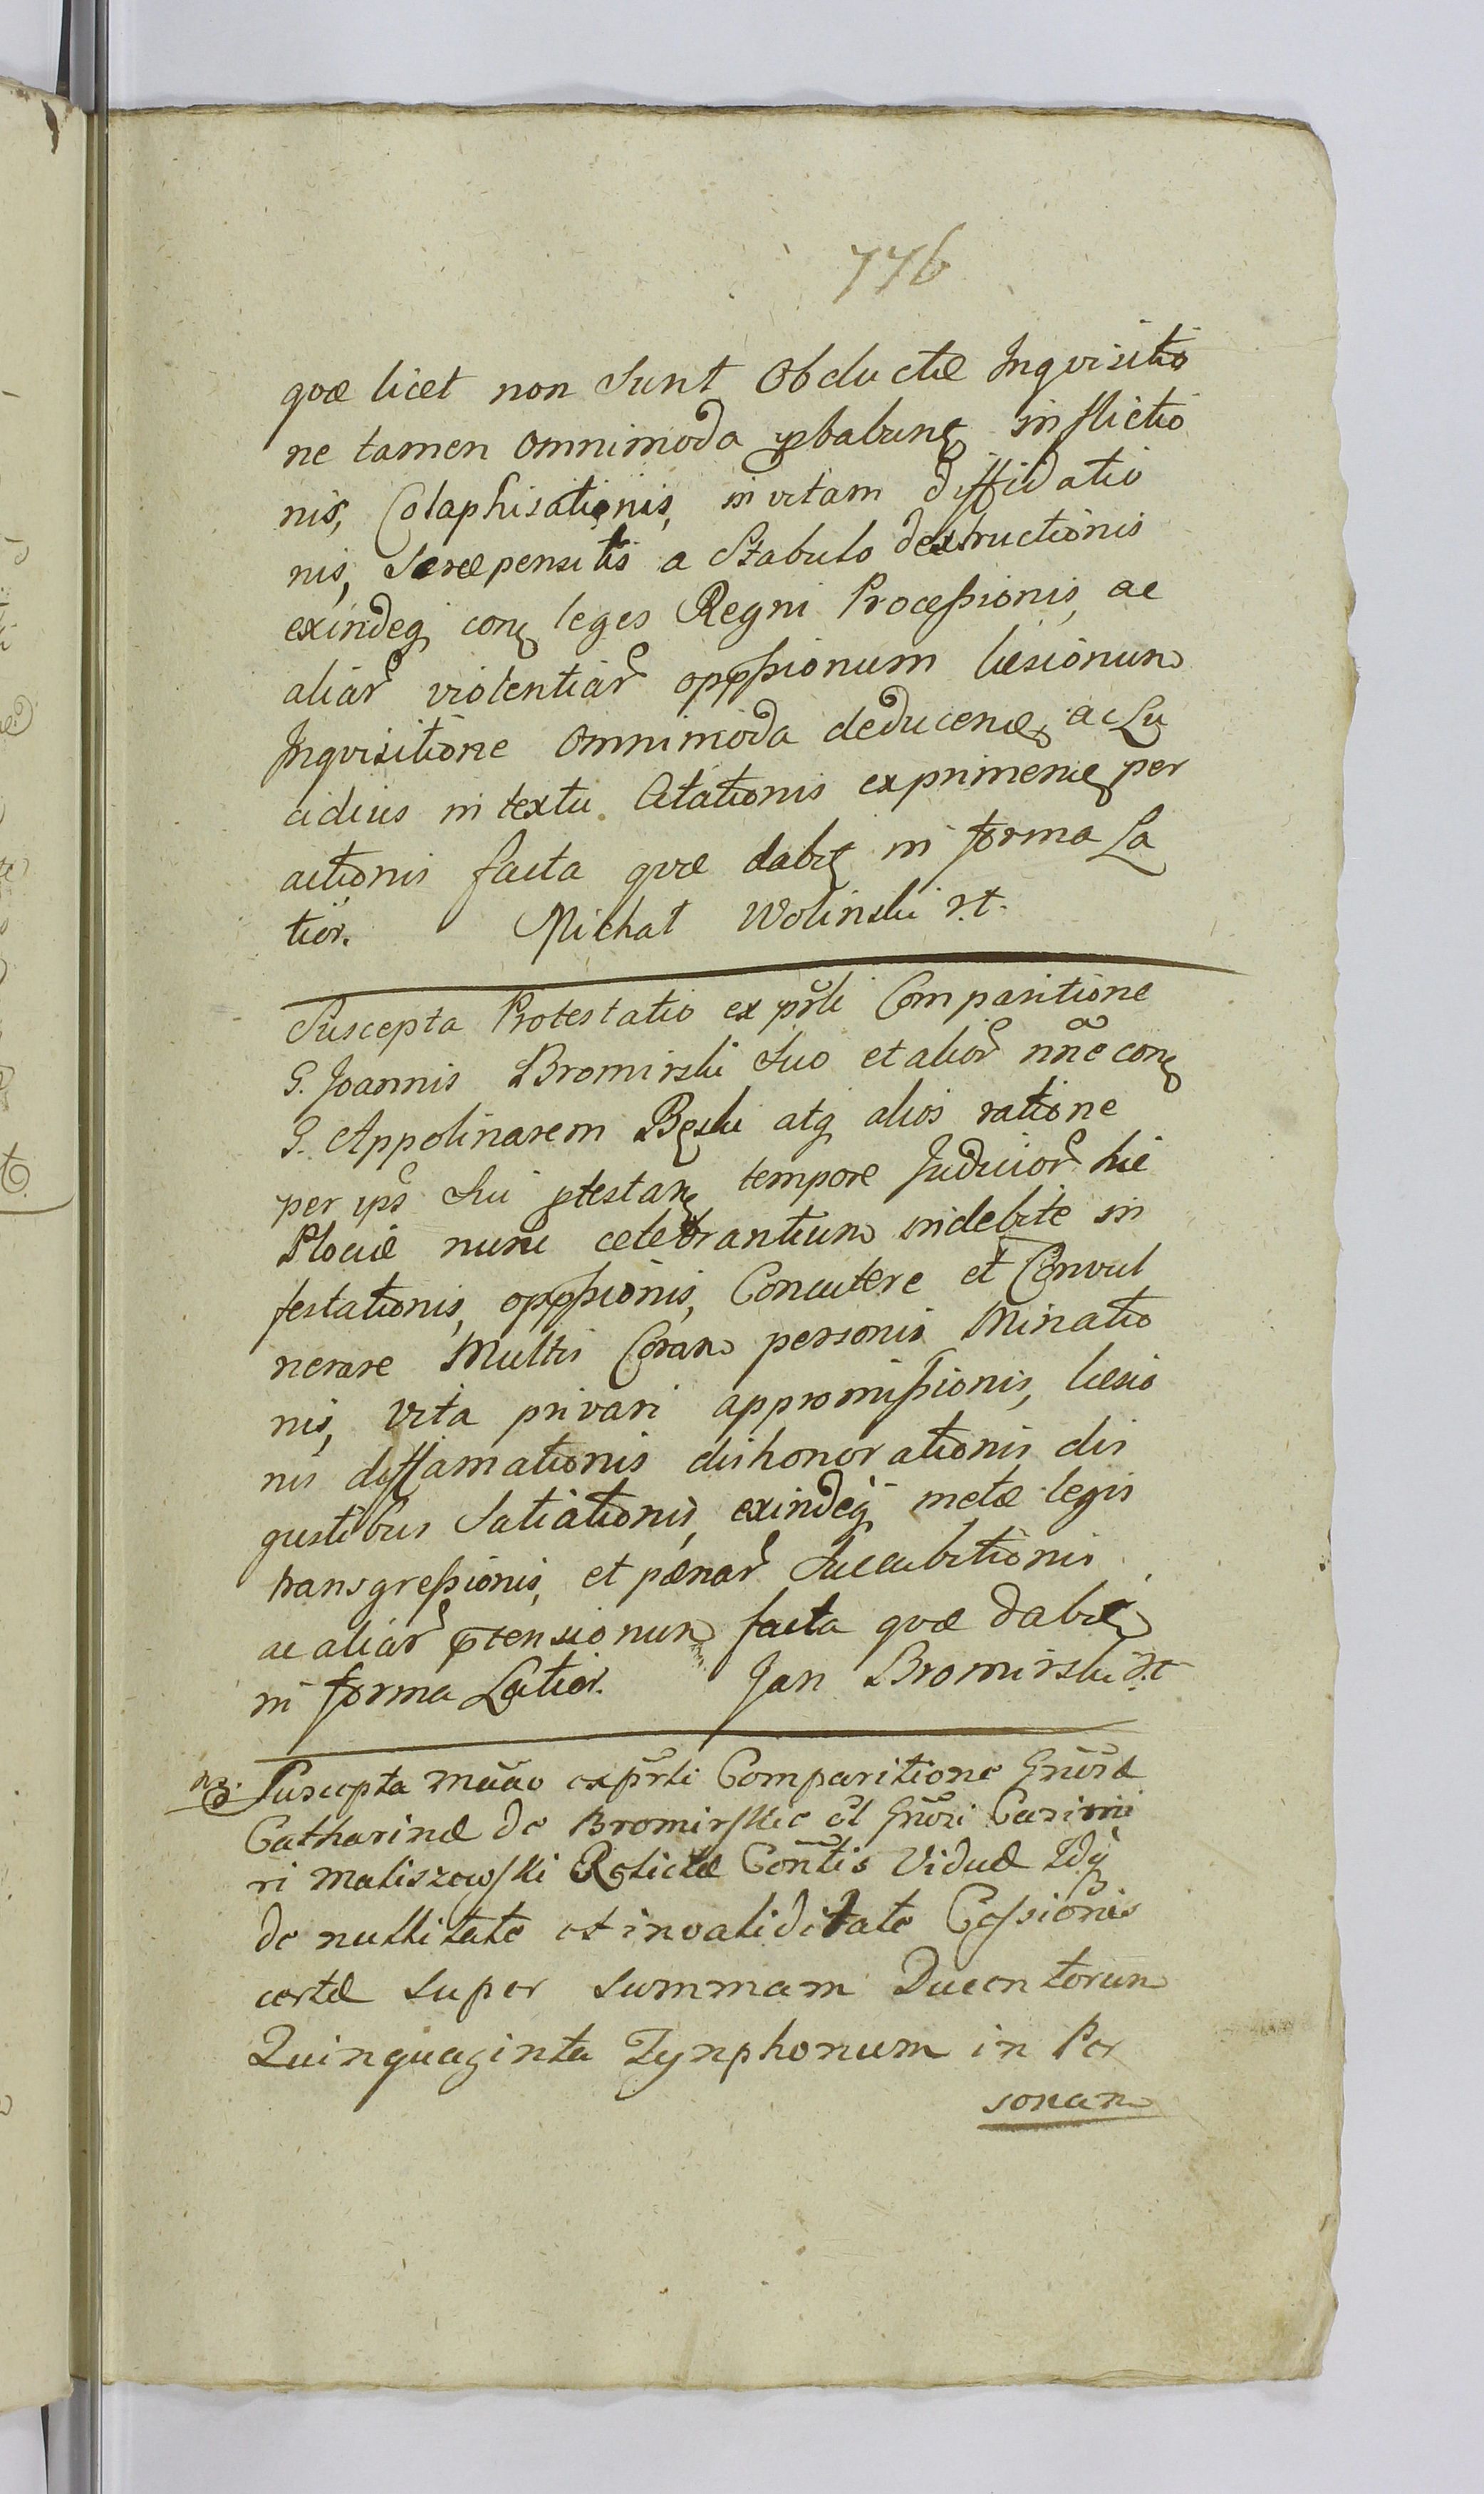 776
qvæ licet non sunt obductæ Inqvisitio
ne tamen omnimoda pbabunt inflictio
nis, Colaphisationis, in vitam diffidatio
nis, Seræ pensilis a Stabulo destructionis
exindeq con leges Regni Processionis, ac
aliar violentiar oppssionum læsionum
Inqvisitione omnimoda deducen ac Lu
cidius in textu Citationis exprimen per
actionis facta qvæ dabit in forma La
tior. Michał Woliński r.t.
Suscepta Protestatio ex prli Comparitione
G. Joannis Bromirski suo et alior nne con
G. Appolinarem Bęski atq alios ratione
per ips sui ptestan tempore Judicior hic
Plociæ nunc celebrantium indebite in
festationis, oppssionis, Concutere et Convul
nerare Multis Coram personis Minatio
nis, vita privari appromissionis, læsio
nis diffamationis dishonorationis dis
gustibus satiationis, exindeq metæ legis
transgressionis, et pænar succubitionis
ac aliar ptensionum facta qvæ dabit
in forma Latior. Jan Bromirski r.t
Suscepta Mãao ex prli Comparitione Gnosæ
Catharinæ de Bromirskie ol Gnosi Casimi
ri Maliszewski Relictæ Contis Viduæ Idq
de nullitate et invaliditate Cessionis
certæ super summam Ducentorum
Quinquaginta Tynphonum in Per
sonam